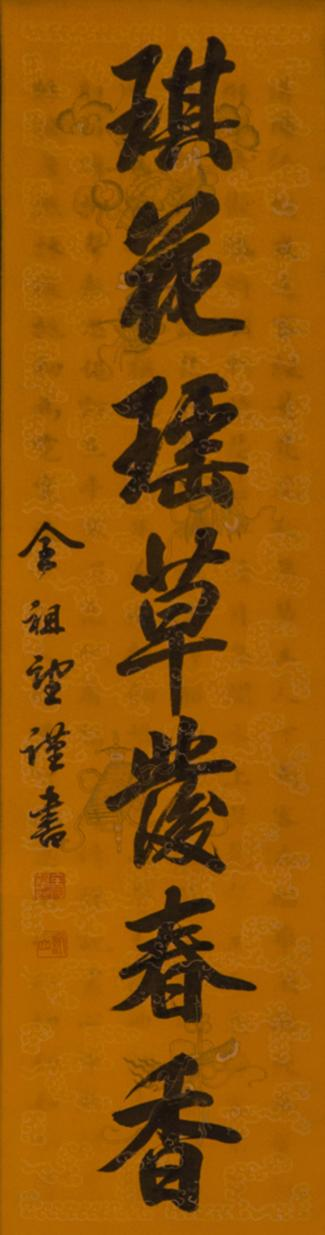 琪花瑤草發春香
全祖望謹書